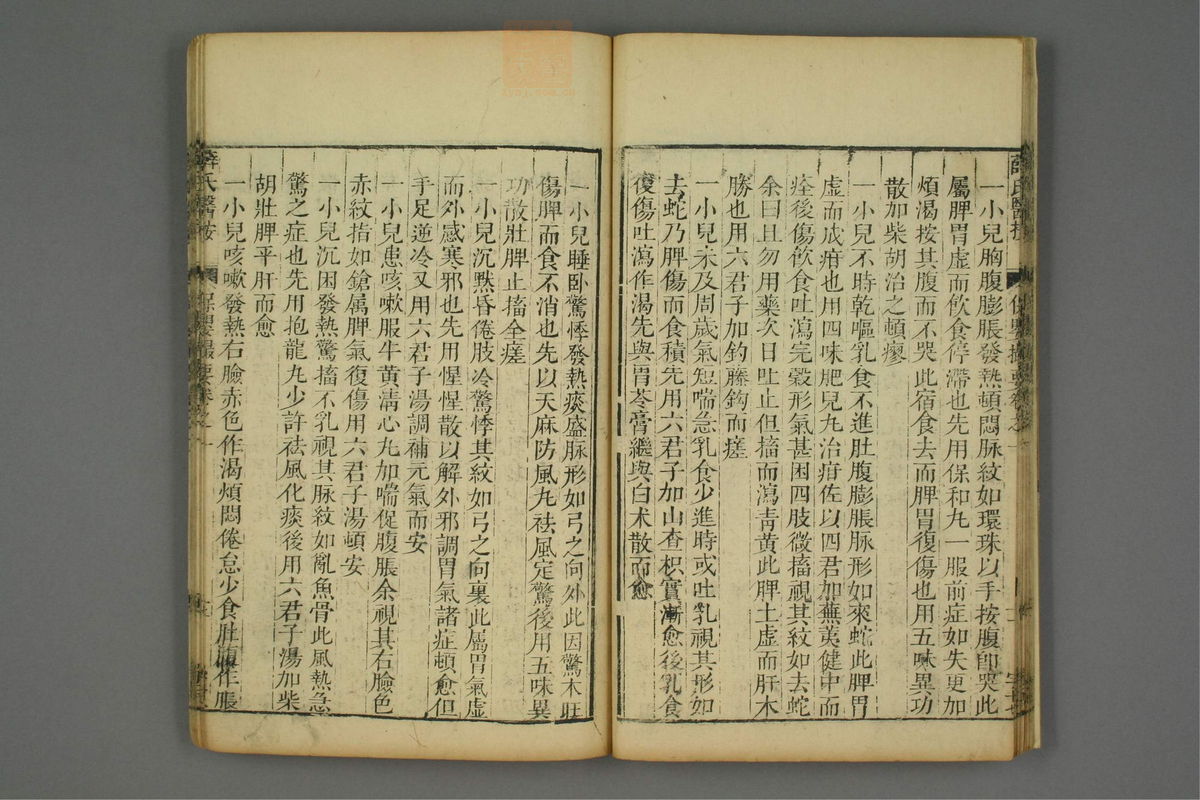 一小兒胸腹膨脹發熱頓悶脉紋如環珠以手按腹即哭此
屬脾胃虛而飲食停滯也先用保和丸一服前症如失更加
煩渴按其腹而不哭此宿食去而脾胃復傷也用五味異功
散加柴胡治之頓瘳
一小兒不時乾嘔乳食不進肚腹膨脹脉形如來蛇此脾胃
虛而成疳也用四味肥兒丸治疳佐以四君加蕪荑健中而
痊後傷飲食吐瀉完穀形氣甚困四肢微搐視其紋如去蛇
余曰且勿用藥次日吐止但搐而瀉青黃此脾土虛而肝木
勝也用六君子加鈎藤鈎而瘥
一小兒未及周歲氣短喘急乳食少進時或吐乳視其形如
去蛇乃脾傷而食積先用六君子加山查枳實漸愈後乳食
復傷吐瀉作渴先與胃苓膏繼與白术散而愈
一小兒睡卧驚悸發熱痰盛脉形如弓之向外此因驚木旺
傷脾而食不消也先以天麻防風丸祛風定驚後用五味異
功散壯脾止搐全瘥
一小兒沉默昏倦肢冷驚悸其紋如弓之向裏此屬胃氣虛
而外感寒邪也先用惺惺散以解外邪調胃氣諸症頓愈但
手足逆冷又用六君子湯調補元氣而安
一小兒患咳嗽服牛黃淸心丸加喘促腹脹余視其右臉色
赤紋指如鎗属脾氣復傷用六君子湯頓安
一小兒沉困發熱驚搐不乳視其脉紋如亂魚骨此風熱急
驚之症也先用抱龍丸少許祛風化痰後用六君子湯加柴
胡壯脾平肝而愈
一小兒咳嗽發熱右臉赤色作渴煩悶倦怠少食肚腹作脹
薛氏醫按
保嬰撮要卷之一